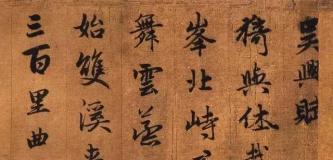 吳興賦
猗與休哉
峯北峙
舞雲蒸
始雙溪夾
三百里曲